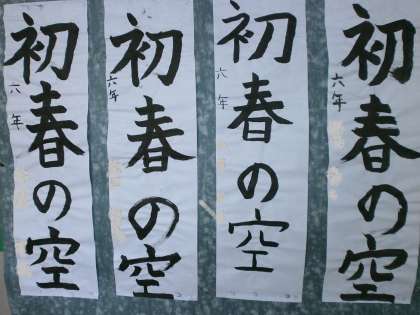 初春の空
六年
初春の空
六年
初春の空
六年
初春の空
六年